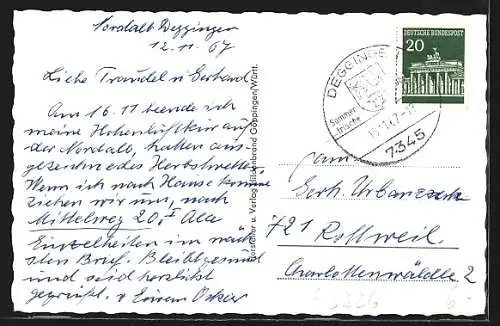 Nordalb Deggingen
12.11.67
Liebe Traudel u Gerhard
Am 16.11 beende ich
meine Höhenluftkur auf
der Nordalb, hatten aus-
gezeichnetes Herbstwetter
Wenn ich nach Hause komme
ziehen wir um, nach
Mittelweg 20, I Alle
Einzelheiten im näch-
sten Brief. Bleibt gesund
und seid herzlichst
gegrüßt. v Eurem Oskar
Hersteller u. Verlag Hildenbrand Göppingen/Württ.
DEUTSCHE BUNDESPOST
20
DEGGINGEN
Sommer
frische
7345
Fam
Gerh Urbanczek
721 Rottweil
Charlottenwäldle 2